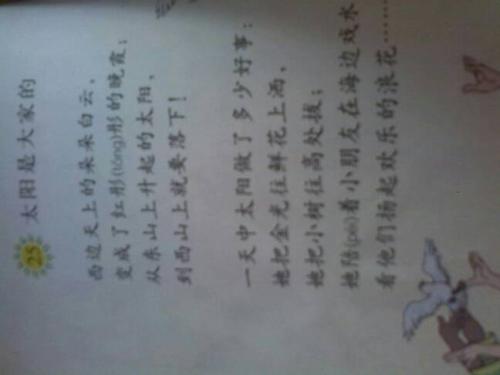 25 太阳是大家的
西边天上的朵朵白云，
变成了红彤(tóng)彤的晚霞；
从东山上升起的太阳，
到西山上就要落下！
一天中太阳做了多少好事：
她把金光往鲜花上洒，
她把小树往高处拔；
她陪(péi)着小朋友在海边戏水，
看他们扬起欢乐的浪花……